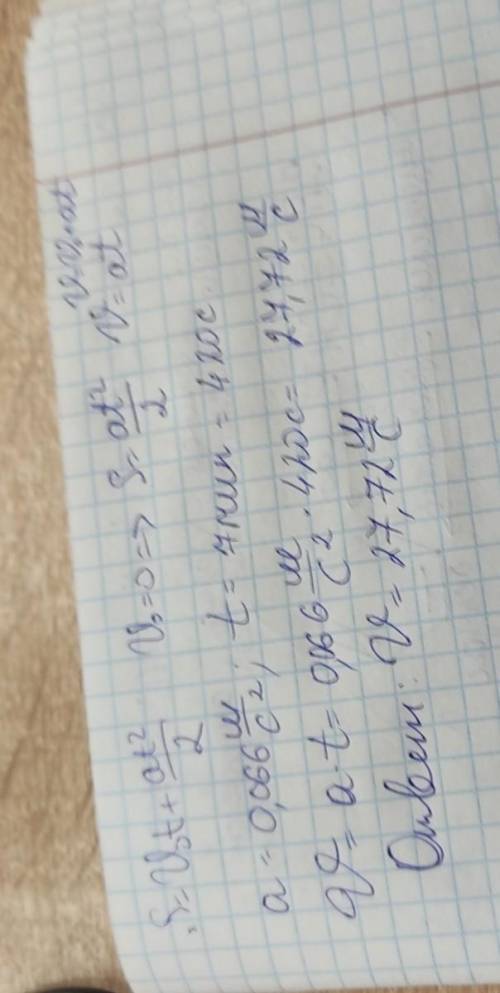 v=v₀+at
S=v₀t+at²/2 v₀=0 => S=at²/2 v=at
a=0,066 м/с²; t=7мин=420с.
v=a·t=0,066 м/с²·420с=27,72 м/с
Ответ: v=27,72 м/с